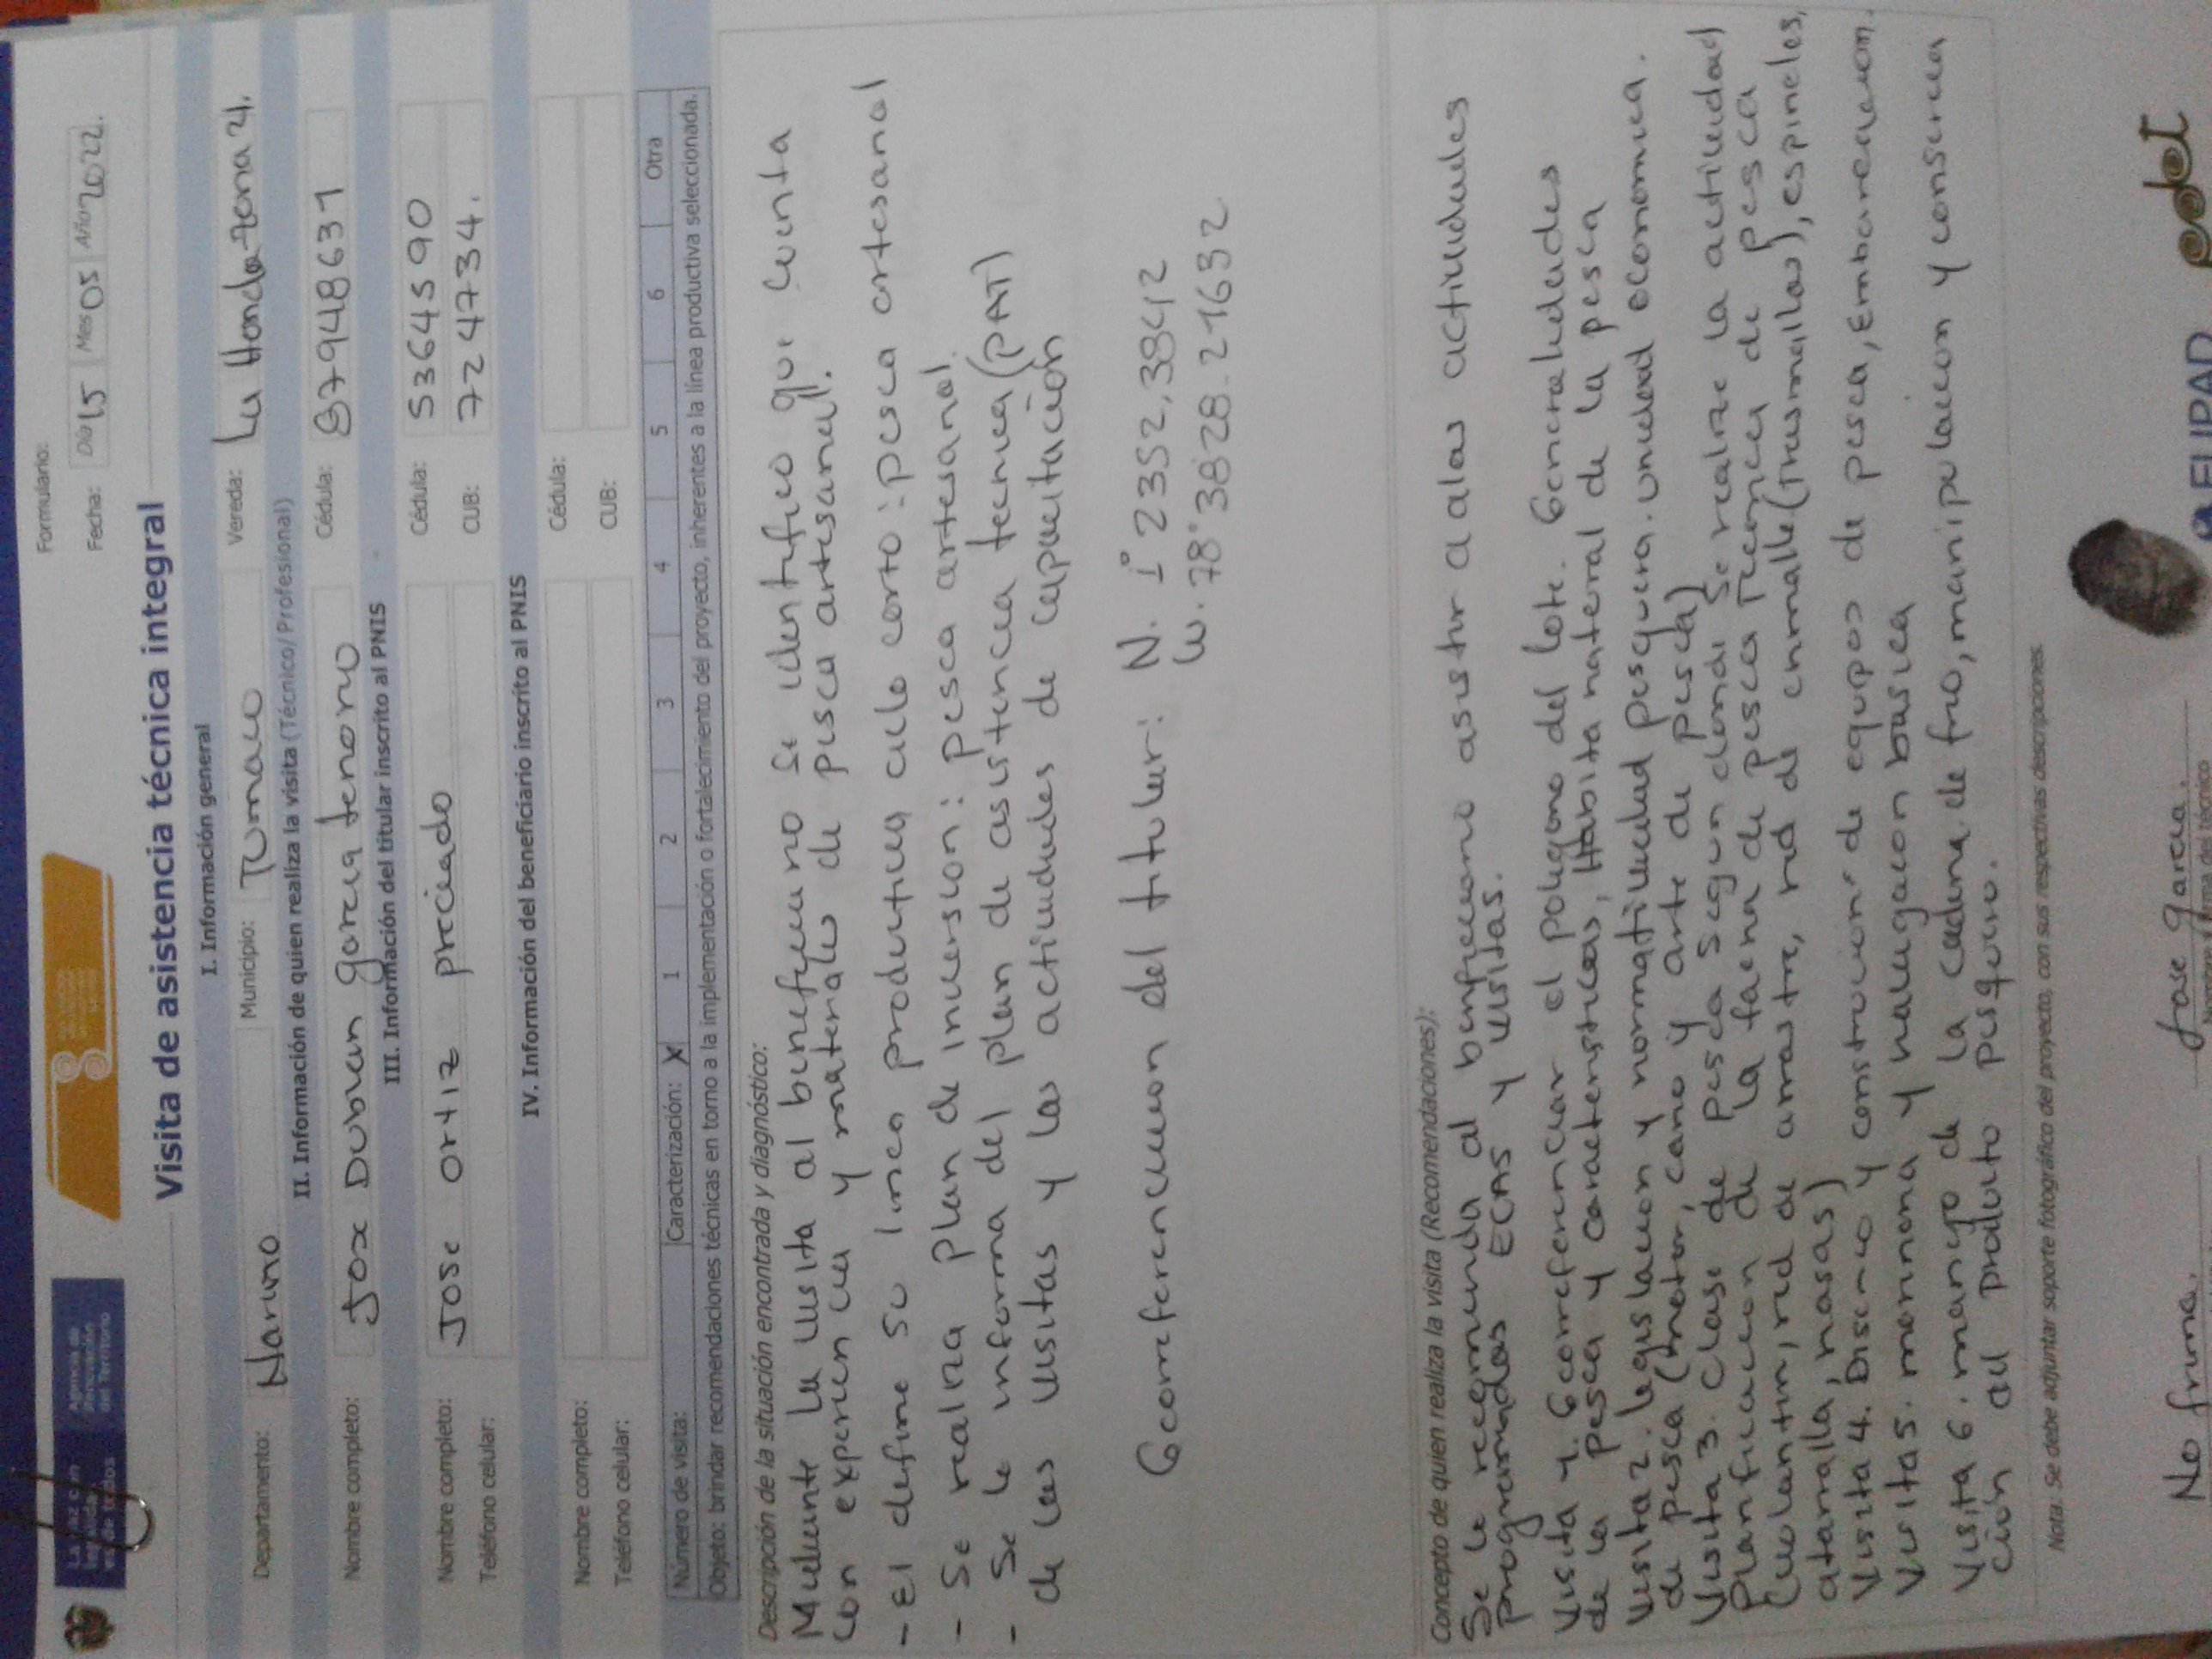 Formulario:
Fecha: Día 15 Mes 05 Año 2022.
Visita de asistencia técnica integral
I. Información general
Departamento: Narino Municipio: Tumaco Vereda: La Honda zona 21.
II. Información de quien realiza la visita (Técnico/Profesional)
Nombre completo: Jose Duban garcia tenorio Cédula: 87948631
III. Información del titular inscrito al PNIS
Nombre completo: Jose ortiz preciado Cédula: 5364590
Teléfono celular: CUB: 724734.
IV. Información del beneficiario inscrito al PNIS
Nombre completo: Cédula:
Teléfono celular: CUB:
Número de visita: Caracterización: X 1 2 3 4 5 6 Otra
Objeto: brindar recomendaciones técnicas en torno a la implementación o fortalecimiento del proyecto, inherentes a la línea productiva seleccionada.
Descripción de la situación encontrada y diagnóstico:
Mediante la visita al beneficiario se identifico que cuenta
con experiencia y materiales de pesca artesanal.
- El define su linea productiva ciclo corto: pesca artesanal
- Se realiza plan de inversion: pesca artesanal.
- Se le informa del plan de asistencia tecnica (PAT)
de las visitas y las actividades de capacitación
Georreferenciacion del titular: N. 1° 2352,3842
W. 78° 3828.21632
Concepto de quien realiza la visita (Recomendaciones):
Se le recomienda al beneficiario asistir a alas actividades
programadas ECAS y visitas.
Visita 1. Georreferenciar el poligono del lote. Generalidades
de la pesca y caracteristicas, Habita natural de la pesca
Visita 2. legislacion y normatividad pesquera. unidad economica.
de pesca (motor, cano y arte de pesca)
Visita 3. Clase de pesca segun donde se realize la actividad
Planificacion de la faena de pesca Tecnicas de pesca
(volantin, red de arrastre, red de enmalle (Trasmallos), espineles,
atarralla, nasas)
Visita 4. Diseno y construcion de equipos de pesca, Embarcacion.
Visita 5. merinena y navegacion basica
Visita 6. manejo de la cadena de frio, manipulacion y conserva
ción del producto pesquero.
Nota: Se debe adjuntar soporte fotográfico del proyecto, con sus respectivas descripciones.
No firma. Jose garcia.